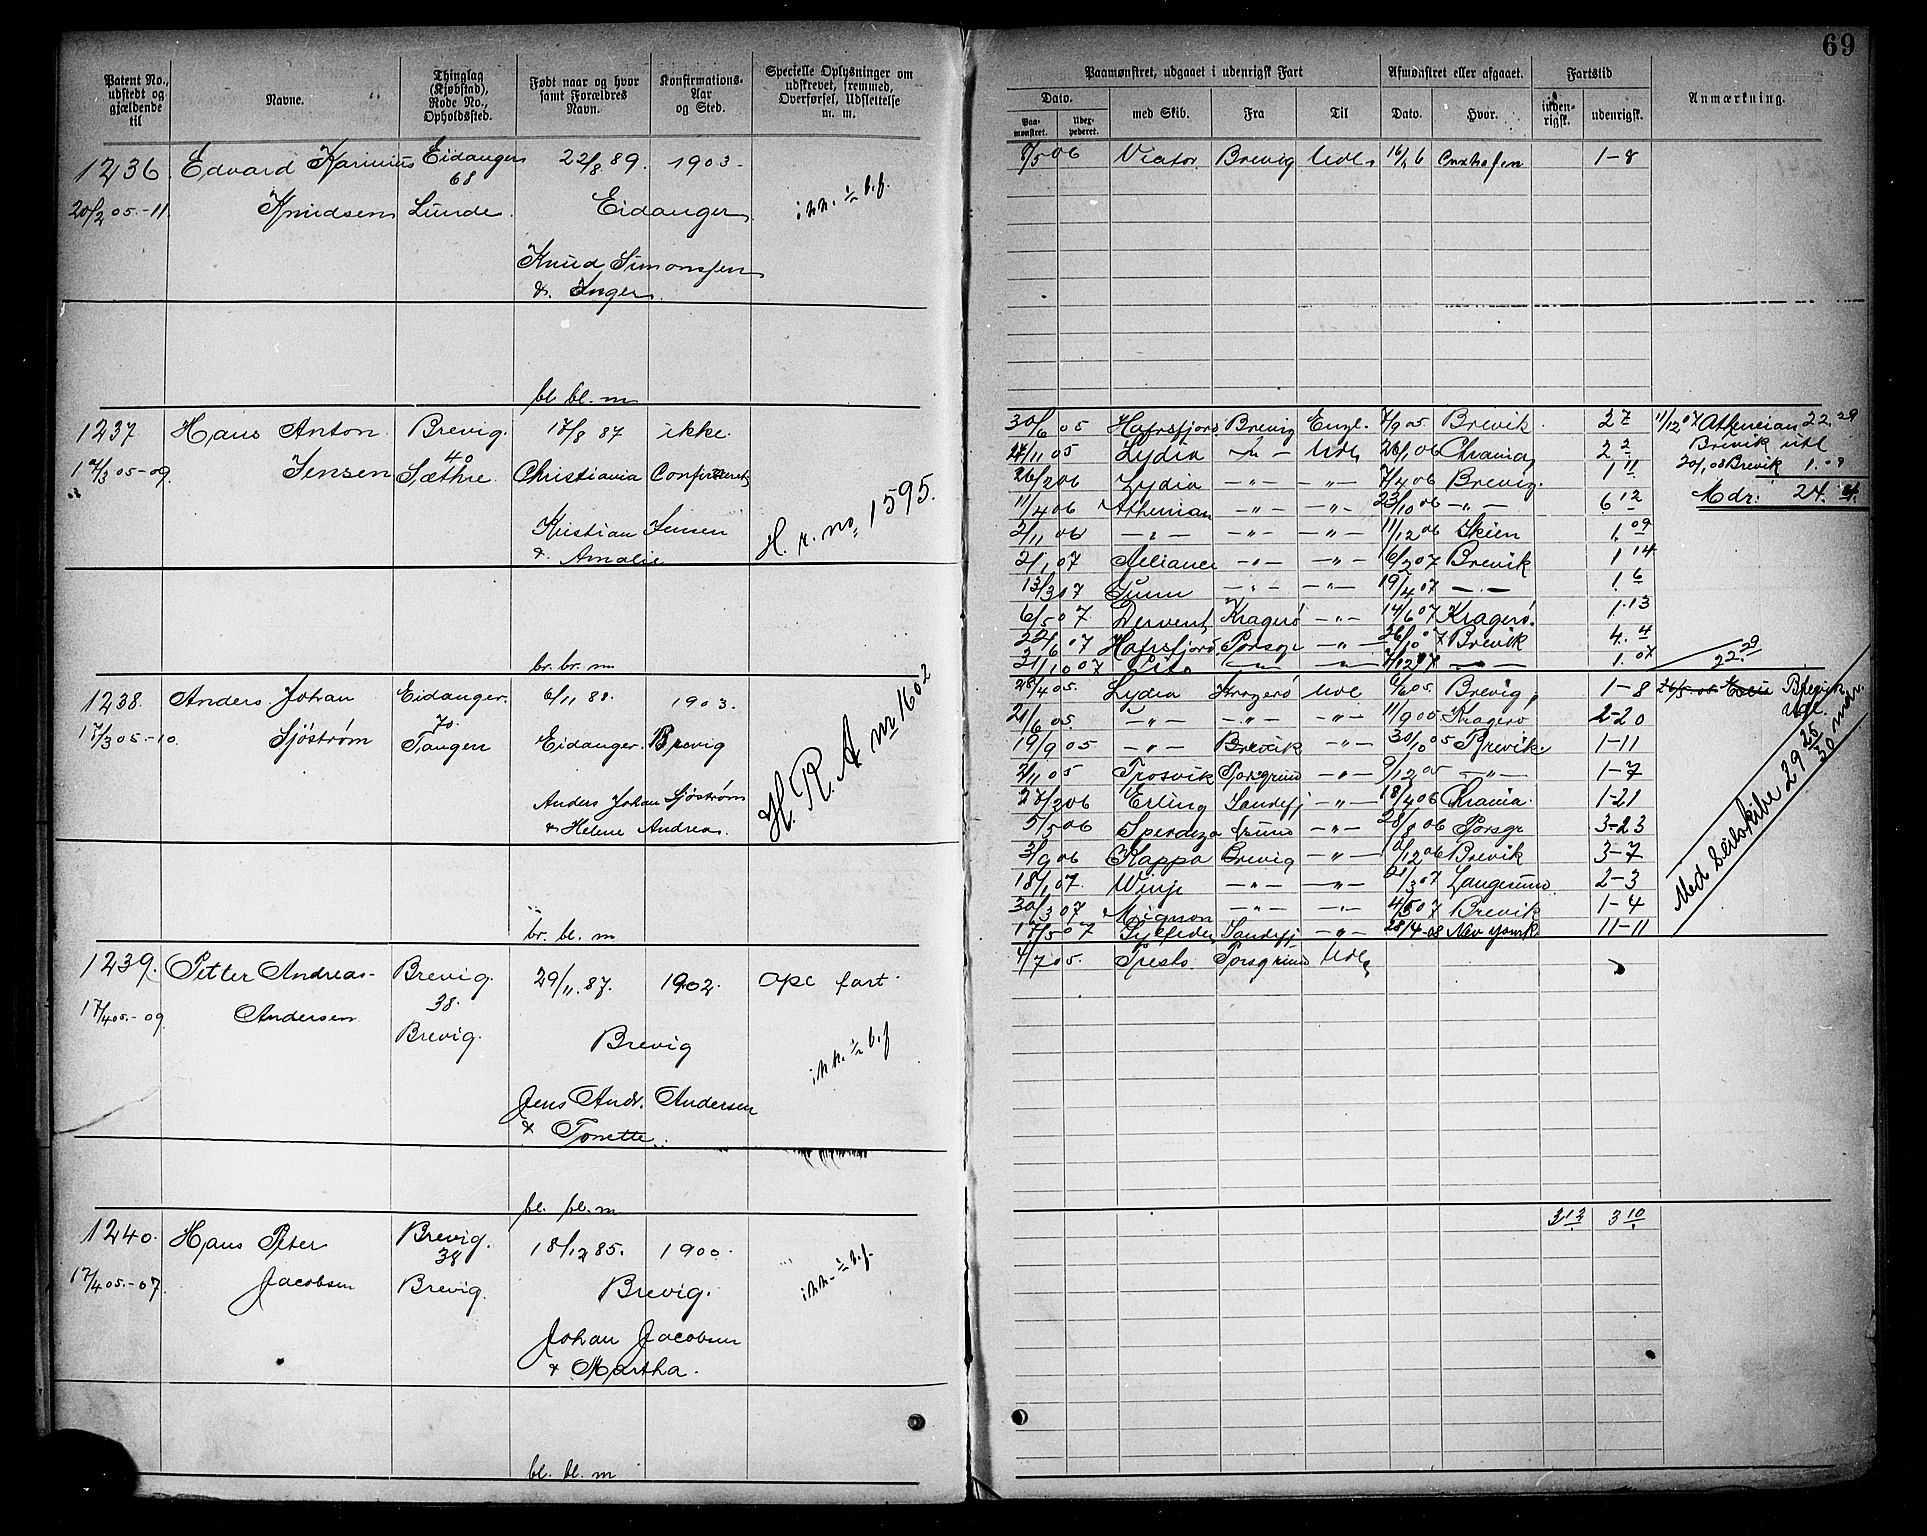 69
Patent No., udstedt og gjældende til
Navne.
Thinglag (Kjøbstad), Rode No., Opholdssted.
Født naar og hvor samt Forældres Navn.
Konfirmations-Aar og Sted.
Specielle Oplysninger om udskrevet, fremmed, Overførsel, Udslettelse m. m.
Paamønstret, udgaaet i udenrigsk Fart
Afmønstret eller afgaaet.
Fartstid
Anmærkning.
Dato.
Paa-mønstret.
med Skib.
Fra
Til
Dato.
Hvor.
inden-rigsk.
udenrigsk.
1236. Edvard Karinius Eidanger 22/8. 89. 1903.
68
20/2 05.-11. Knudsen Lunde. Eidanger
Knud Simonsen
& Inger.
bl. bl. m
8/5 06 Viator Brevig Udl. 16/6 6 Cuxhafen 1-8
1237 Hans Anton Brevig. 17/8 87 ikke
40
05-09. Jensen Sæthre. Christiania Confirmeret
H. r. no. 1595.
Kristian Jensen
& Amalie
br. br. m
30/6 05 Hafrsfjord Brevig Engl. 7/9 05. Brevik 2 7 11/12 07 Athenian 22.29
11 05 Lydia -"- Udl. 26/1 06 Chrania 2 2 Brevik udl
26/2 06 Lydia -"- -"- 7/4 06 Brevig. 1 11 30/1 08 Brevik 1.
11/4 06 Athenian -"- -"- 23/10 06 -"- 6 12 Mdr: 24. 4.
2/11 06 -"- -"- -"- 11/12 06 Skien 1. 09
2/1 07 Alliance -"- -"- 16/2 07 Brevik 1 14
13/3 07 -"- -"- 19/4 07 -"- 1. 6
6/5 07. Derwent Kragerø -"- 14/6 07 Kragerø. 1.13
22/6 07 Hafrsfjord Porsgr -"- 26/10 07 Brevik 4. 4
31/10 07 -"- -"- -"- 1. 07 22.
1238. Anders Johan Eidanger. 6/11 88. 1903.
70
17/3 05.-10. Sjöstrøm Tangen Eidanger. Brevig
H. R. A nr 1602
Anders Johan Sjöstrøm
& Helene Andrea.
br. bl. m
28/4 05. Lydia Kragerø Udl 6/6 05. Brevig, 1-8 Brevik
Udl.
21/6 05. -"- -"- -"- 11/9 05 Kragerø 2-20
19/9 05 -"- Brevik -"- 30/10 05 Brevik. 1-11
2/11 05 Trosvik Porsgrund -"- 9/12 05 -"- 1-7
27/2 06 Erling Sandefj -"- 18/4 06 Chrania. 1-21
5/5 06 -"- 28/8 06 Porsgr 3-23
3/9 06 Kappa Brevig -"- 12 06 Brevik 3-7
18/1 07. Winje -"- -"- 21/3 07 Langesund. 2-3
30/3 07 Mignon -"- -"- 4/5 07 Brevik 1-4
17/5 07 Sandefj -"- 28/4-08 New York 11-11
Med Seilskibe 29 25/30 mdr.
1239. Petter Andreas- Brevig. 29/11. 87. 1902. Opl fart.
38.
17/4 05.-09. Andersen Brevig. Brevig
Jens Andr. Andersen
& Tonette.
bl. bl. m
4/7 05. Presto Porsgrund Udl.
1240. Hans Peter Brevig. 18/12 85. 1900.
38
17/4 05.-07. Jacobsen Brevig. Brevig.
Johan Jacobsen
& Martha.
bl. bl. m
3 13 3 10